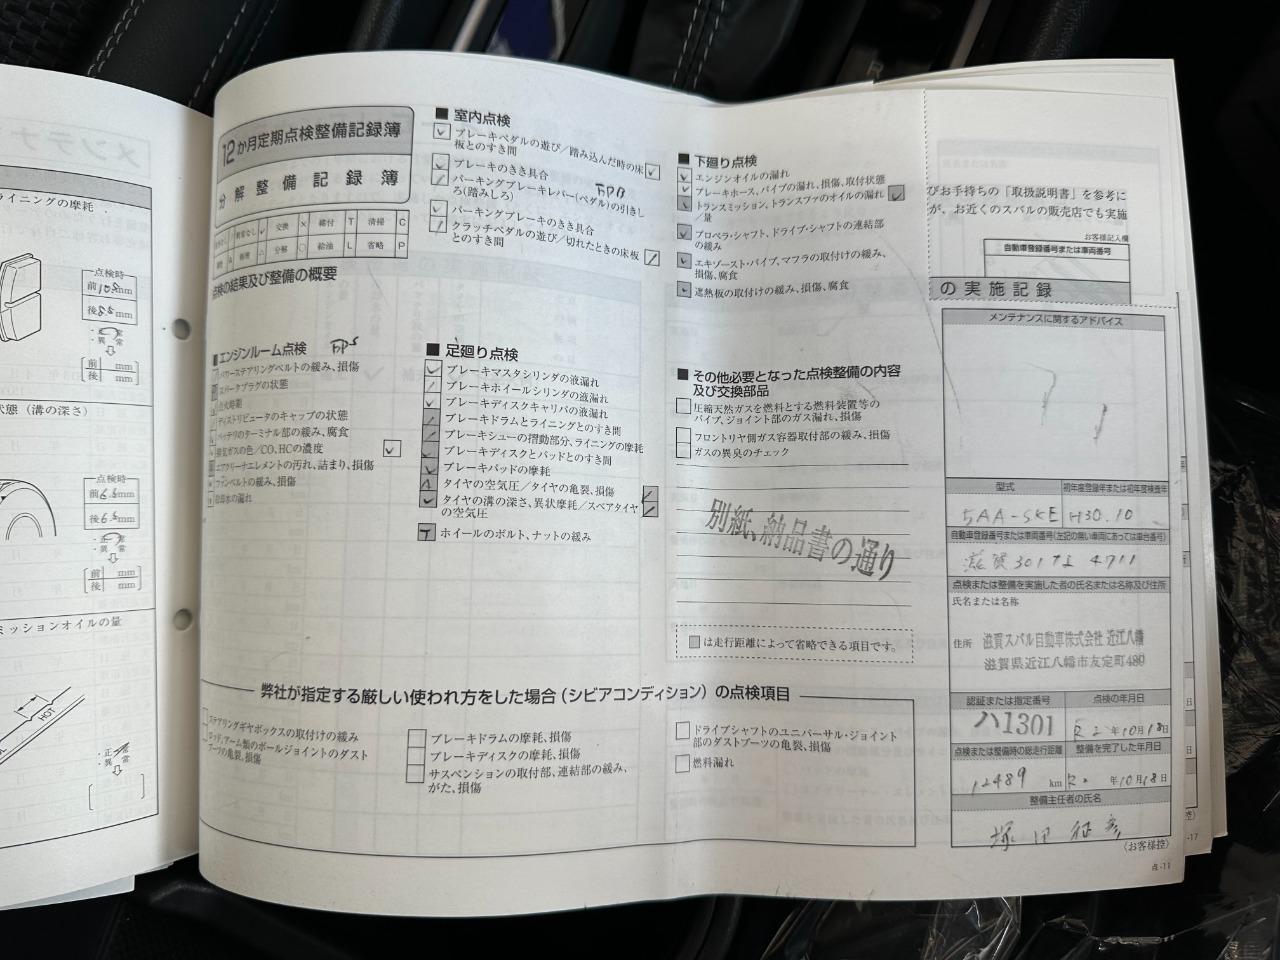 ライニングの摩耗
点検時
前10.5mm
後8.5mm
・正常
・異常
前 mm
後 mm
状態（溝の深さ）
点検時
前6.5mm
後6.5mm
・正常
・異常
前 mm
後 mm
ミッションオイルの量
HOT
・正常
・異常
12か月定期点検整備記録簿
分解整備記録簿
交換 × 締付 T 清掃 C
分解 ○ 給油 L 省略 P
点検の結果及び整備の概要
■ 室内点検
ブレーキペダルの遊び／踏み込んだ時の床
板とのすき間
ブレーキのきき具合
パーキングブレーキレバー(ペダル)の引きし
ろ(踏みしろ)
パーキングブレーキのきき具合
クラッチペダルの遊び／切れたときの床板
とのすき間
■エンジンルーム点検
パワーステアリングベルトの緩み、損傷
スパークプラグの状態
点火時期
ディストリビュータのキャップの状態
バッテリのターミナル部の緩み、腐食
排気ガスの色／CO、HCの濃度
エアクリーナエレメントの汚れ、詰まり、損傷
ファンベルトの緩み、損傷
冷却水の漏れ
■ 足廻り点検
ブレーキマスタシリンダの液漏れ
ブレーキホイールシリンダの液漏れ
ブレーキディスクキャリパの液漏れ
ブレーキドラムとライニングとのすき間
ブレーキシューの摺動部分、ライニングの摩耗
ブレーキディスクとパッドとのすき間
ブレーキパッドの摩耗
タイヤの空気圧／タイヤの亀裂、損傷
タイヤの溝の深さ、異状摩耗／スペアタイヤ
の空気圧
ホイールのボルト、ナットの緩み
■ 下廻り点検
エンジンオイルの漏れ
ブレーキホース、パイプの漏れ、損傷、取付状態
トランスミッション、トランスファのオイルの漏れ
／量
プロペラ・シャフト、ドライブ・シャフトの連結部
の緩み
エキゾースト・パイプ、マフラの取付けの緩み、
損傷、腐食
遮熱板の取付けの緩み、損傷、腐食
■ その他必要となった点検整備の内容
及び交換部品
圧縮天然ガスを燃料とする燃料装置等の
パイプ、ジョイント部のガス漏れ、損傷
フロントリヤ側ガス容器取付部の緩み、損傷
ガスの異臭のチェック
別紙、納品書の通り
は走行距離によって省略できる項目です。
弊社が指定する厳しい使われ方をした場合（シビアコンディション）の点検項目
ステアリングギヤボックスの取付けの緩み
ロッド、アーム類のボールジョイントのダスト
ブーツの亀裂、損傷
ブレーキドラムの摩耗、損傷
ブレーキディスクの摩耗、損傷
サスペンションの取付部、連結部の緩み、
がた、損傷
ドライブシャフトのユニバーサル・ジョイント
部のダストブーツの亀裂、損傷
燃料漏れ
びお手持ちの「取扱説明書」を参考に
が、お近くのスバルの販売店でも実施
お客様記入欄
自動車登録番号または車両番号
の実施記録
メンテナンスに関するアドバイス
型式
初年度登録年または初年度検査年
5AA-SKE
H30.10
自動車登録番号または車両番号(左記の無い車両にあっては車台番号)
滋賀 301 4711
点検または整備を実施した者の氏名または名称及び住所
氏名または名称
滋賀スバル自動車株式会社 近江八幡
住所
滋賀県近江八幡市友定町480
認証または指定番号
点検の年月日
ハ1301
R2年10月18日
点検または整備時の総走行距離
整備を完了した年月日
12489 km
R2年10月18日
整備主任者の氏名
(お客様控)
点-11
-17